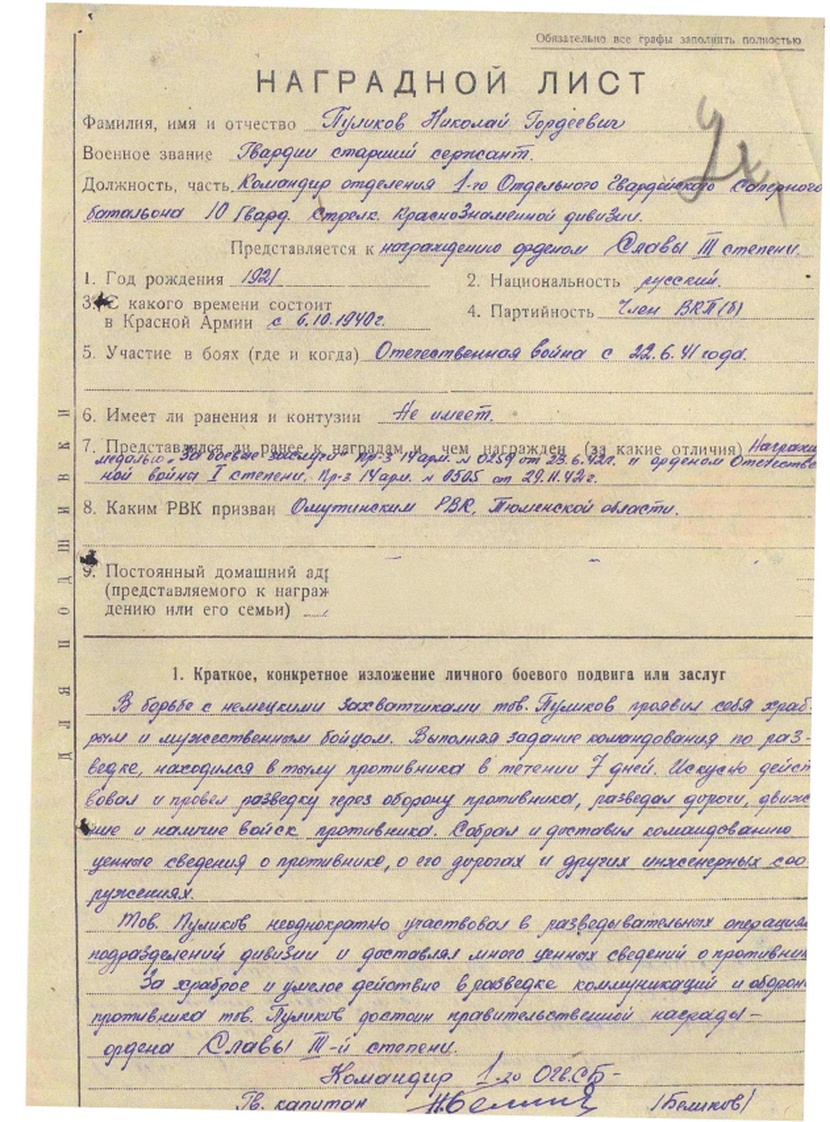 Обязательно все графы заполнить полностью
НАГРАДНОЙ ЛИСТ
Фамилия, имя и отчество Пуликов Николай Гордеевич
Военное звание Гвардии старший сержант.
Должность, часть Командир отделения 1-го Отдельного Гвардейского Саперного
батальона 10 Гвард. Стрелк. Краснознаменной дивизии.
Представляется к награждению орденом Славы III степени.
1. Год рождения 1921 2. Национальность русский.
3. С какого времени состоит
в Красной Армии с 6.10.1940г. 4. Партийность Член ВКП(б)
5. Участие в боях (где и когда) Отечественная война с 22.6.41 года.
6. Имеет ли ранения и контузии Не имеет.
7. Представлялся ли ранее к наградам и чем награжден (за какие отличия) Награжд
медалью „За боевые заслуги" Пр-з 14 арм. № 0259 от 23.6.42г. и орденом Отечестве
ной войны I степени. Пр-з 14 арм. № 0505 от 29.11.42г.
8. Каким РВК призван Омутинским РВК, Тюменской области.
9. Постоянный домашний адр
(представляемого к награж
дению или его семьи)
ДЛЯ ПОДШИВКИ
1. Краткое, конкретное изложение личного боевого подвига или заслуг
В борьбе с немецкими захватчиками тов. Пуликов проявил себя храб-
рым и мужественным бойцом. Выполняя задание командования по раз-
ведке, находился в тылу противника в течении 7 дней. Искусно дейст
вовал и провел разведку через оборону противника, разведал дороги, движе
ние и наличие войск противника. Собрал и доставил командованию
ценные сведения о противнике, о его дорогах и других инженерных соо
ружениях.
Тов. Пуликов неоднократно участвовал в разведывательных операция
подразделений дивизии и доставлял много ценных сведений о противник
За храброе и умелое действие в разведке коммуникаций и оборон
противника тов. Пуликов достоин правительственной награды-
ордена Славы III-й степени.
Командир 1-го ОГв.СБ-
Гв. капитан /Беликов/